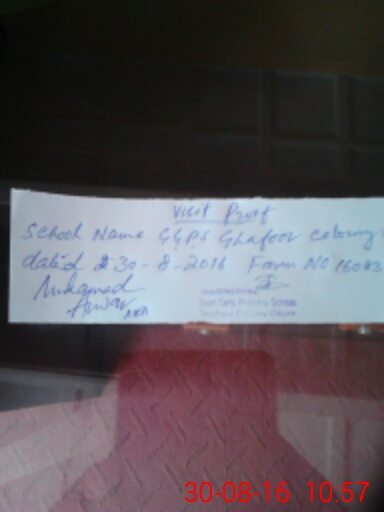 Visit Proof
School Name GGPS Ghafoor Colony
dated 30-8-2016 Form No 16083
Muhamad
Anwar
Govt Girls Primary School
Ghafoor Colony
30-08-16 10.57